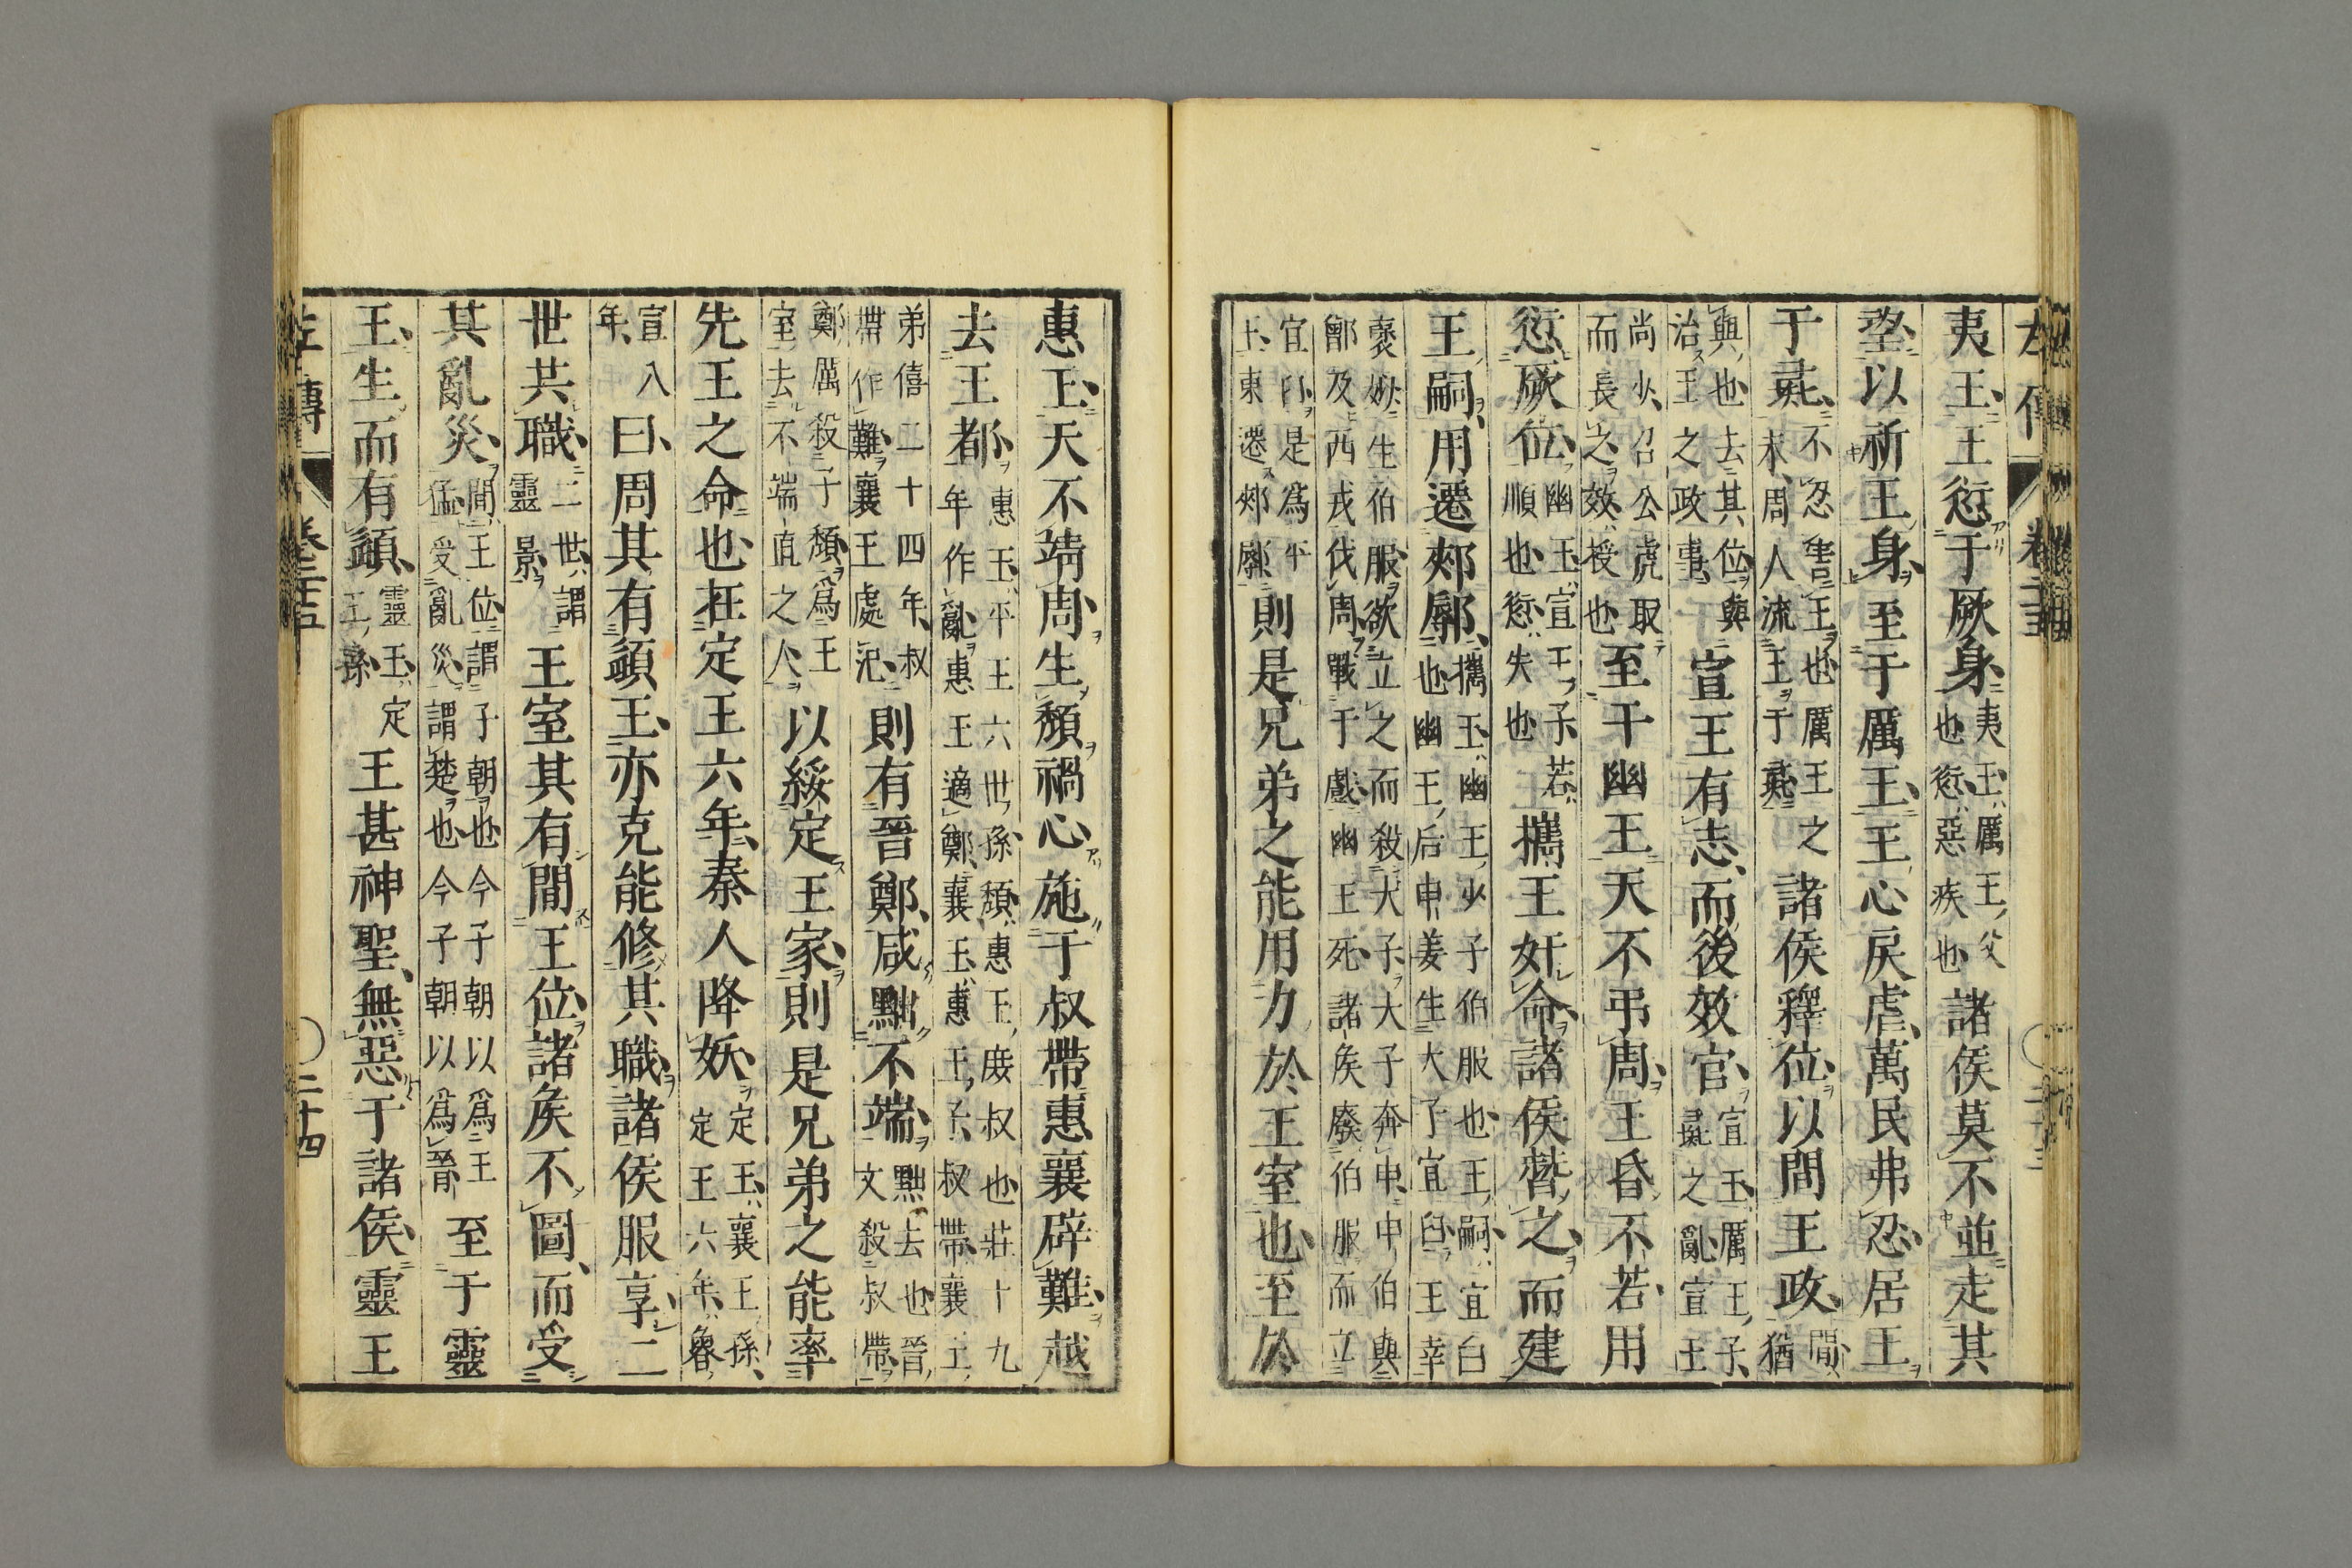 左傳 卷二十五 二十三
夷王、王愆于厥身、夷王、厲王父也愆、惡疾也諸侯莫不並走其
望以祈王身、至于厲王、王心戾虐、萬民弗忍、居王
于彘、不忍害王也厲王之末、周人流王于彘諸侯釋位以間王政、間猶
與也去其位與治王之政事宣王有志、而後效官、宣王厲王子、彘之亂宣王
尚少、召公虎取而長之效授也至于幽王天不弔周、王昏不若、用
愆厥位、幽王、宣王子若、順也愆、失也攜王奸命、諸侯替之、而建
王嗣、用遷郟鄏、攜王、幽王少子伯服也王嗣、宜臼也幽王后申姜生大子宜臼、王幸
褒姒生伯服欲立之而殺大子、大子奔申、申伯與鄫及西戎伐周戰于戲幽王死諸侯廢伯服而立
宜臼是為平王、東遷郟鄏則是兄弟之能用力於王室也、至於
惠王、天不靖周、生頹禍心、施于叔帶惠襄辟難、越
去王都、惠王、平王六世孫頹、惠王庶叔也莊十九年作亂惠王適鄭襄王、惠王子、叔帶、襄王
弟僖二十四年、叔帶作難襄王處氾則有晉鄭、咸黜不端、黜去也晉文殺叔帶
鄭厲殺子頹爲王室去不端直之人以綏定王家、則是兄弟之能率
先王之命也、在定王六年、秦人降妖、定王、襄王孫、定王六年、魯
宣八年、曰、周其有頿王、亦克能修其職、諸侯服享、二
世共職、二世、謂靈景王室其有間王位、諸侯不圖、而受
其亂災、間王位謂子朝也今子朝以爲王猛受亂災謂楚也今子朝以爲晉至于靈
王、生而有頿、靈王、定王孫王甚神聖、無惡于諸侯、靈王
左傳 卷二十五 二十四